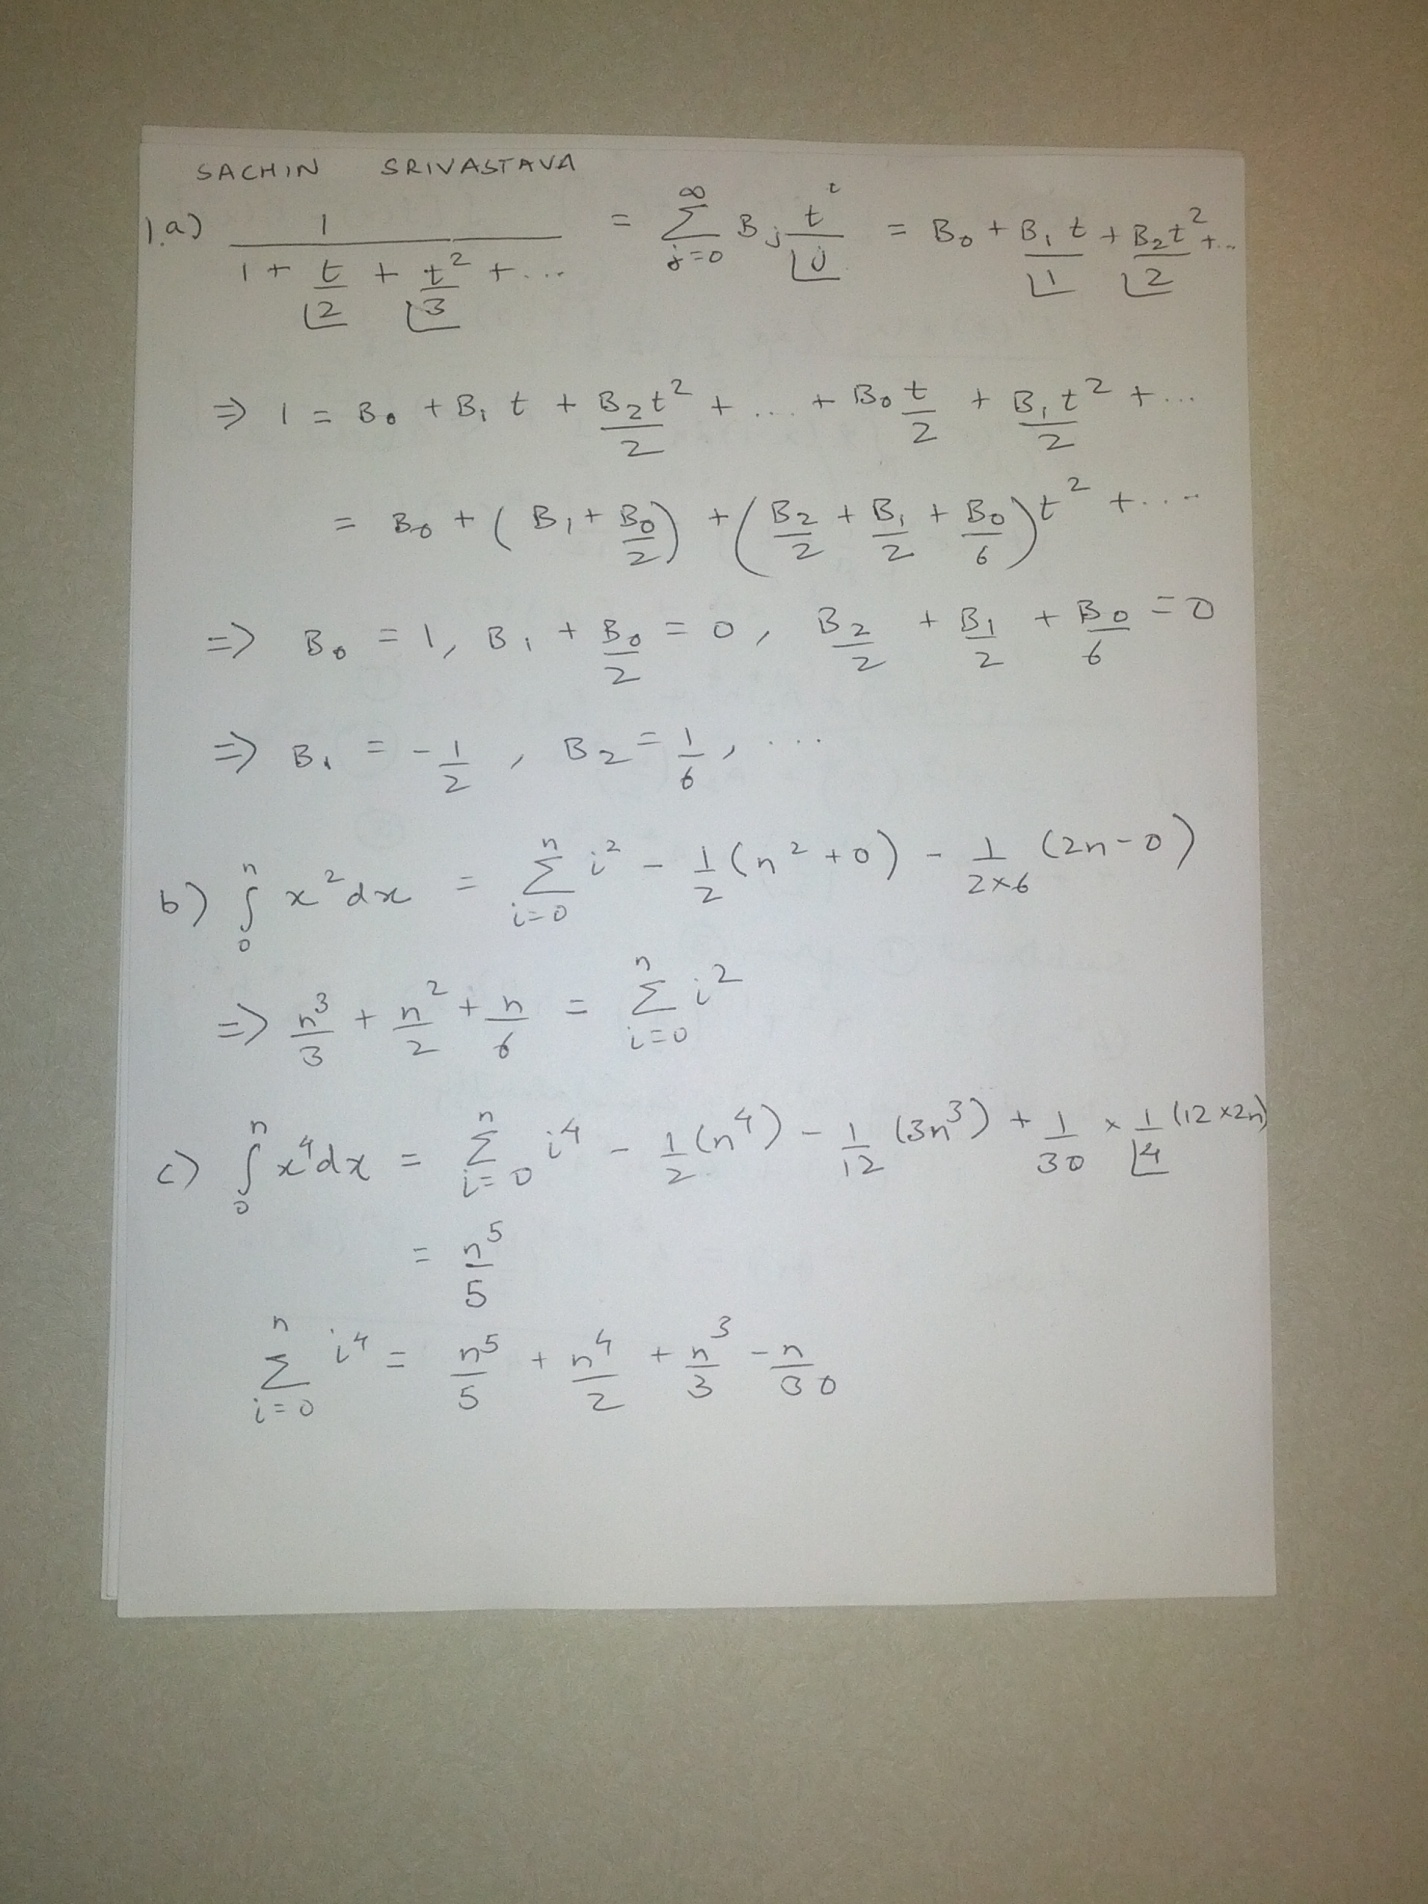 SACHIN SRIVASTAVA
1.a) 1/(1 + t/⌊2 + t²/⌊3 + ...) = ∑_{j=0}^{∞} B_j t^i/⌊j = B₀ + B₁t/⌊1 + B₂t²/⌊2 + ...
⇒ 1 = B₀ + B₁t + B₂t²/2 + ... + B₀t/2 + B₁t²/2 + ...
= B₀ + (B₁ + B₀/2) + (B₂/2 + B₁/2 + B₀/6)t² + ....
⇒ B₀ = 1, B₁ + B₀/2 = 0, B₂/2 + B₁/2 + B₀/6 = 0
⇒ B₁ = -1/2, B₂ = 1/6, ...
b) ∫₀ⁿ x²dx = ∑_{i=0}^{n} i² - 1/2(n²+0) - 1/(2×6) (2n-0)
⇒ n³/3 + n²/2 + n/6 = ∑_{i=0}^{n} i²
c) ∫₀ⁿ x⁴dx = ∑_{i=0}^{n} i⁴ - 1/2(n⁴) - 1/12(3n³) + 1/30 × 1/⌊4 (12×2n)
= n⁵/5
∑_{i=0}^{n} i⁴ = n⁵/5 + n⁴/2 + n³/3 - n/30